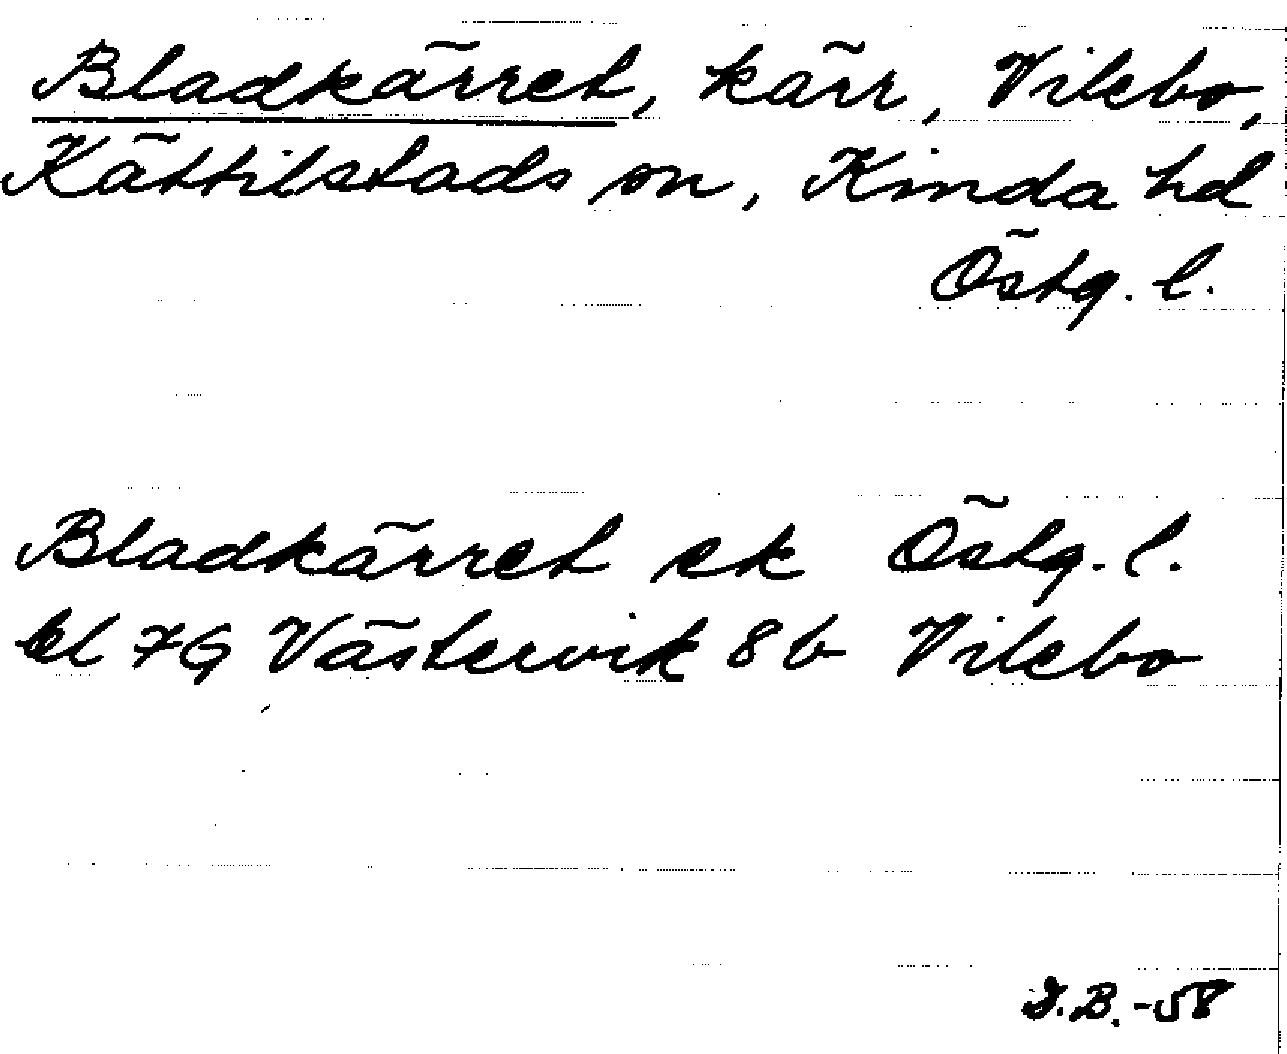 Bladkärret, kärr, Vilebo,
Kättilstads sn, Kinda hd
Östg. l.
Bladkärret ek Östg. l.
bl 7G Västervik 8b Vilebo
I.B.-58